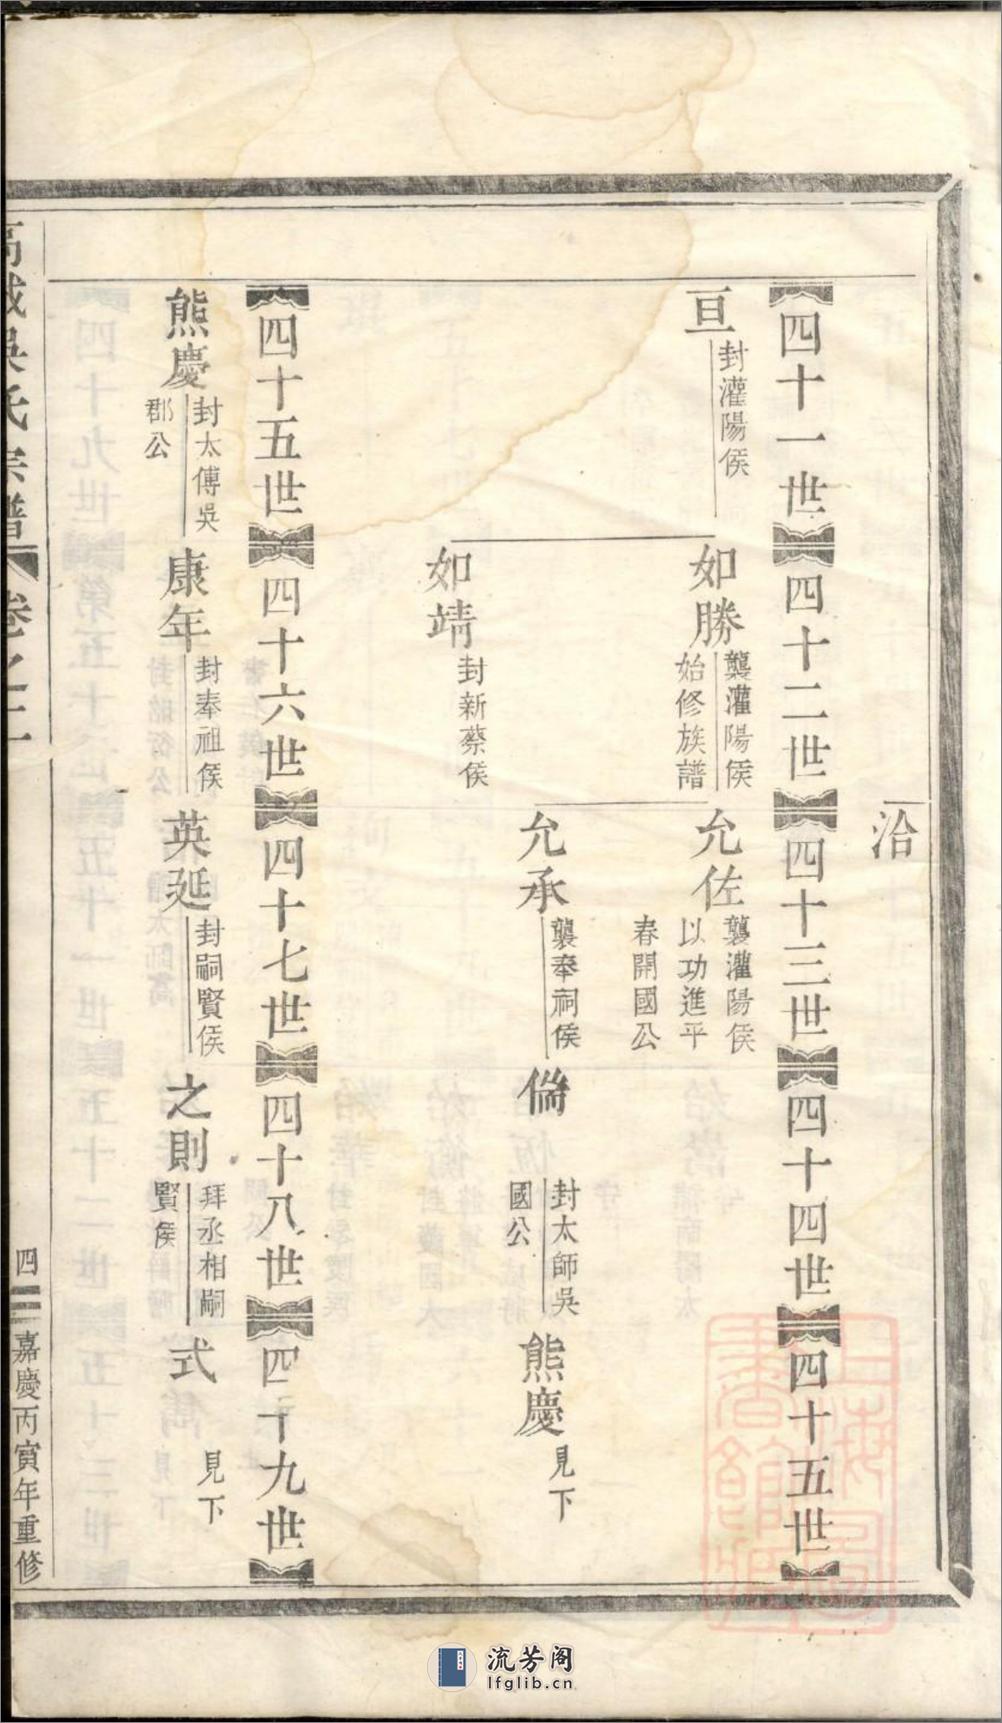 洽
四十一世 四十二世 四十三世 四十四世 四十五世
亘 封灌陽侯
如勝 襲灌陽侯
始修族譜
允佐 襲灌陽侯
以功進平
春開國公
如靖 封新蔡侯
允承 襲奉祠侯
脩 封太師吳
國公
熊慶 見下
四十五世 四十六世 四十七世 四十八世 四十九世
熊慶 封太傅吳
郡公
康年 封奉祖侯
英延 封嗣賢侯
之則 拜丞相嗣
賢侯
式 見下
高城吳氏宗譜 卷之二 四 嘉慶丙寅年重修
上海圖書館藏
流芳阁
lfglib.cn